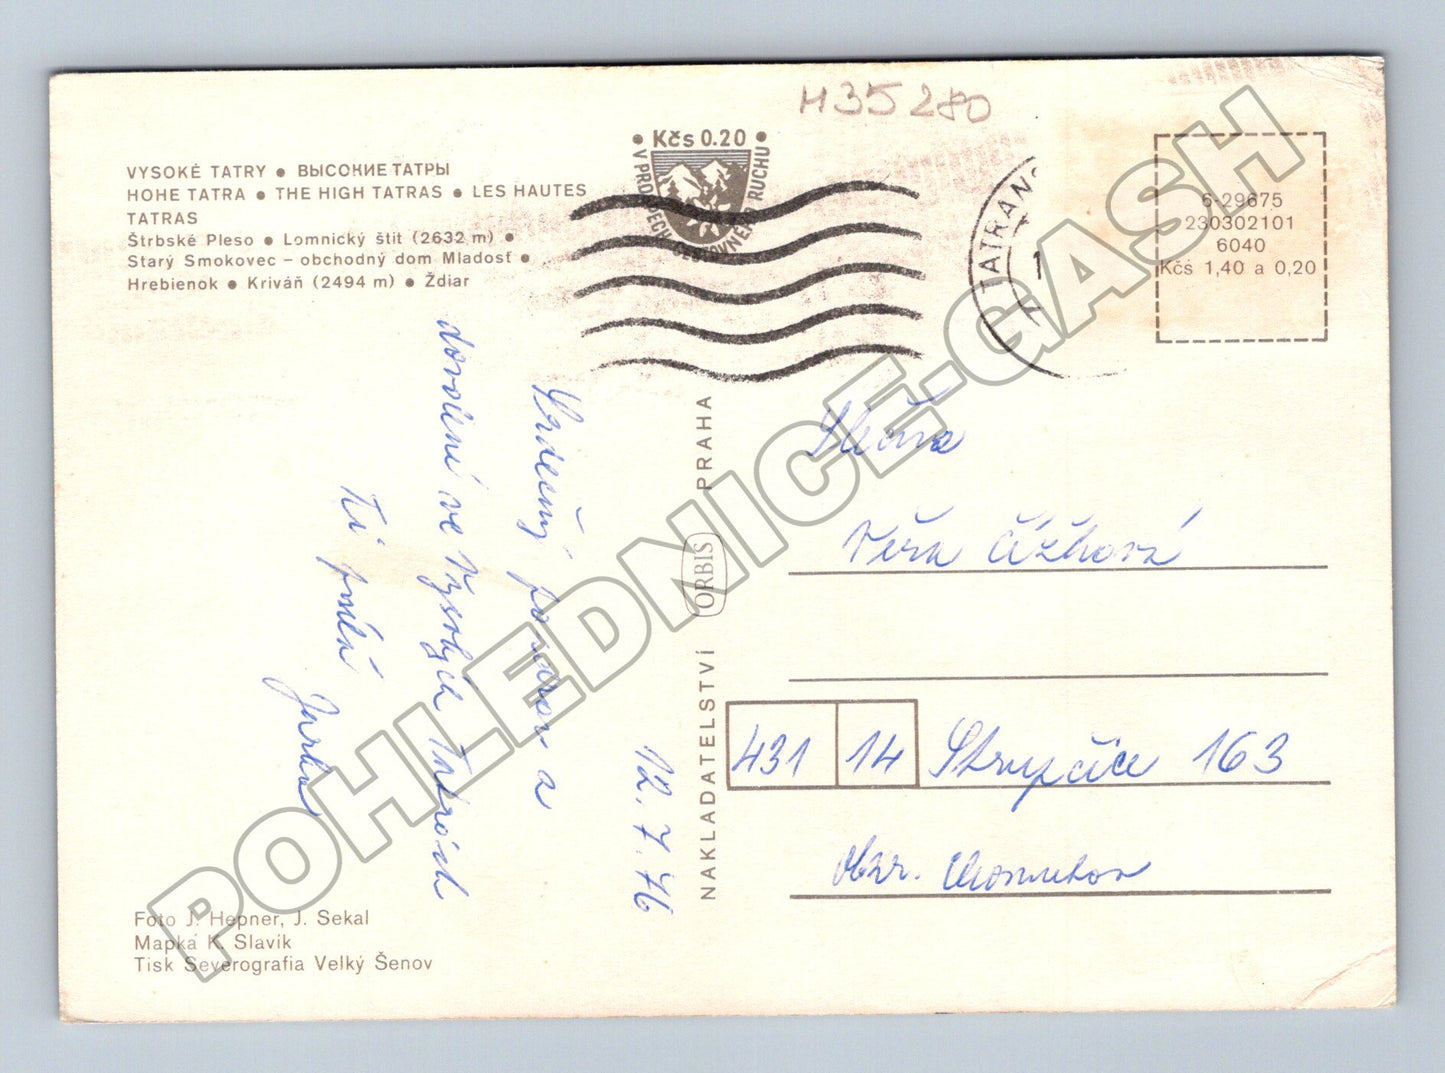 H35280
VYSOKÉ TATRY ● ВЫСОКИЕ ТАТРЫ
HOHE TATRA ● THE HIGH TATRAS ● LES HAUTES
TATRAS
Štrbské Pleso ● Lomnický štít (2632 m) ●
Starý Smokovec – obchodný dom Mladosť ●
Hrebienok ● Kriváň (2494 m) ● Ždiar
● Kčs 0.20 ●
V PROSPECH CESTOVNÉHO RUCHU
TATRAN
1
6-29675
230302101
6040
Kčś 1,40 a 0,20
Srdečný pozdrav z
dovolení ve Vysokých Tatrách
Ti posílá
Jarka
12. 7. 76
NAKLADATELSTVÍ ORBIS PRAHA
Slečna
Věra Čížková
431 14 Strupčice 163
okr. Chomutov
Foto J. Hepner, J. Sekal
Mapka K. Slavík
Tisk Severografia Velký Šenov
POHLEDNICE-GASH